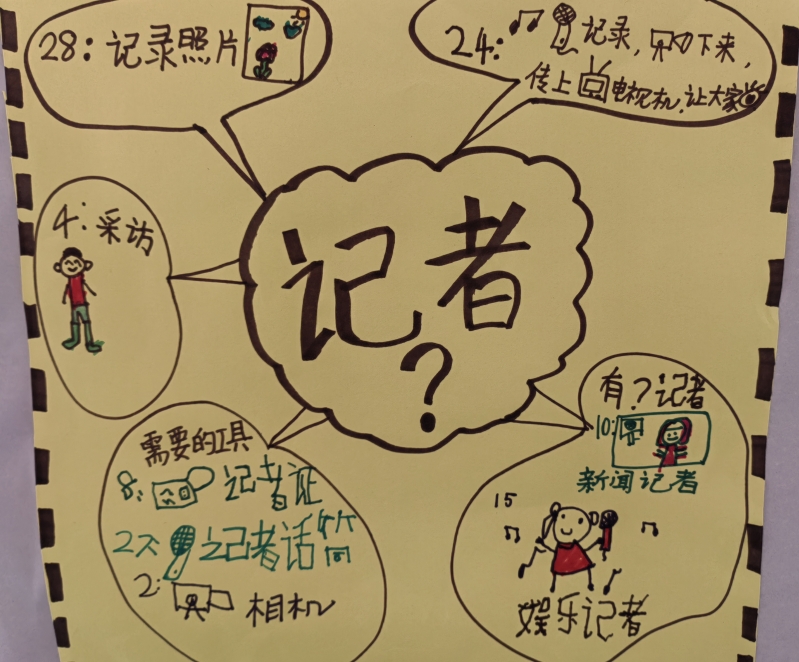 28：记录照片
24：记录，拍下来，
传上电视机，让大家
4：采访
记者
？
需要的工具
8：记者证
22：记者话筒
2：相机
有？记者
10：
新闻记者
15
娱乐记者